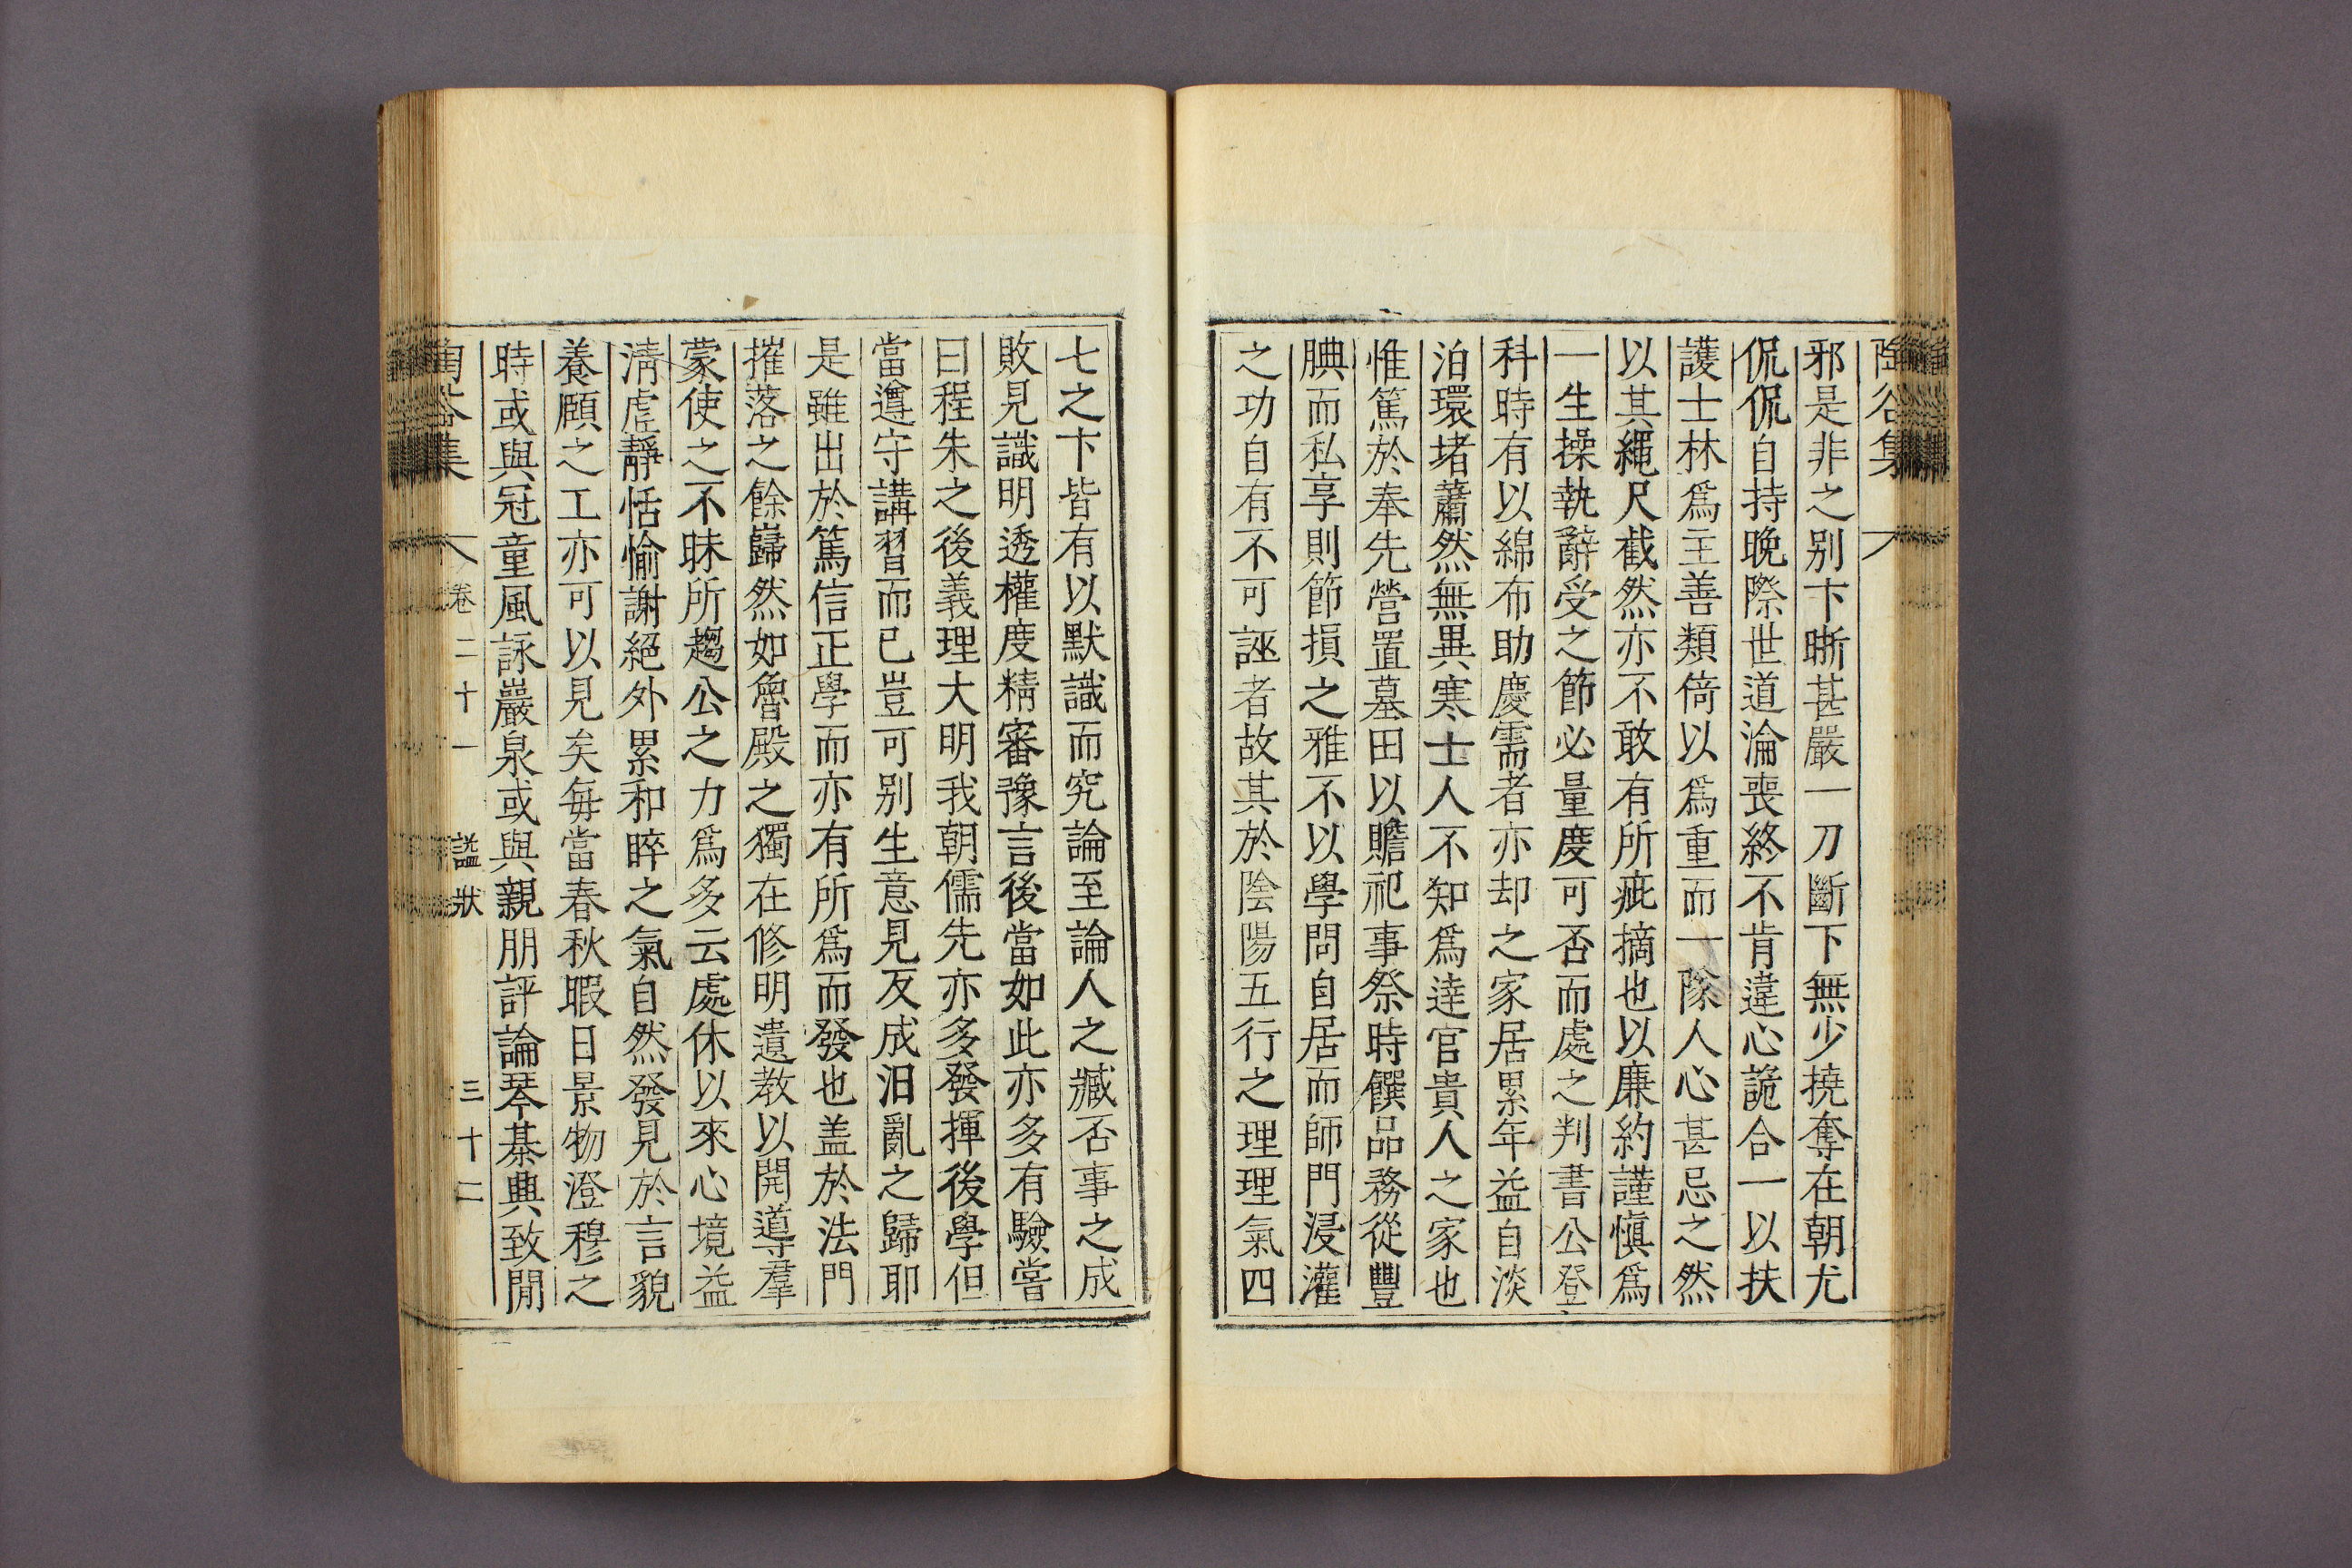 陶谷集
邪是非之别卞晣甚嚴一刀斷下無少撓奪在朝尤
侃侃自持晩際世道淪喪終不肯違心詭合一以扶
護士林爲主善類倚以爲重而一隊人心甚忌之然
以其繩尺截然亦不敢有所疵摘也以廉約謹愼爲
一生操執辭受之節必量度可否而處之判書公登
科時有以綿布助慶需者亦却之家居累年益自淡
泊環堵蕭然無異寒士人不知爲逹官貴人之家也
惟篤於奉先營置墓田以贍祀事祭時饌品務從豐
腆而私享則節損之雅不以學問自居而師門浸灌
之功自有不可誣者故其於陰陽五行之理理氣四
七之卞皆有以默識而究論至論人之臧否事之成
敗見識明透權度精審豫言後當如此亦多有驗嘗
曰程朱之後義理大明我朝儒先亦多發揮後學但
當遵守講習而已豈可别生意見反成汨亂之歸耶
是雖出於篤信正學而亦有所爲而發也盖於法門
摧落之餘巋然如魯殿之獨在修明遺教以開導羣
蒙使之不昧所趨公之力爲多云處休以來心境益
淸虛靜恬愉謝絕外累和睟之氣自然發見於言貌
養頤之工亦可以見矣每當春秋暇日景物澄穆之
時或與冠童風詠巖泉或與親朋評論琴棊典致閒
陶谷集 卷二十一 謚狀 三十二